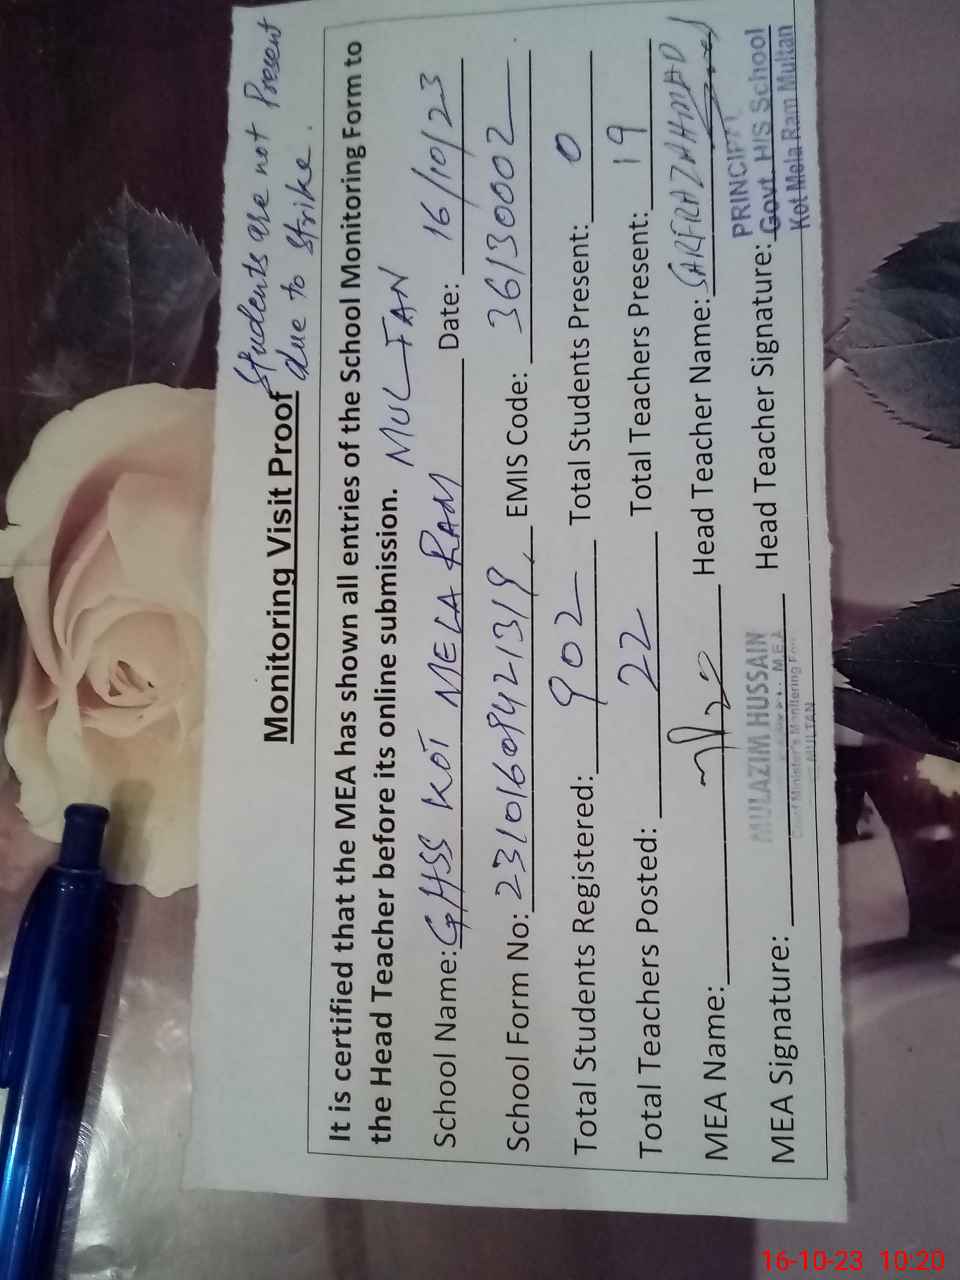 Students are not Present
due to strike.
Monitoring Visit Proof
It is certified that the MEA has shown all entries of the School Monitoring Form to
the Head Teacher before its online submission.
School Name: GHSS KOT MELA RAM MULTAN Date: 16/10/23
School Form No: EMIS Code: 36130002
Total Students Registered: 902 Total Students Present: 0
Total Teachers Posted: 22 Total Teachers Present: 19
MEA Name: Head Teacher Name: SARFRAZ AHMAD
MULAZIM HUSSAIN
MEA
Chief Minister's Monitoring Force
MULTAN
PRINCIPAL
Govt. H/S School
Kot Mela Ram Multan
MEA Signature: Head Teacher Signature:
16-10-23 10:20